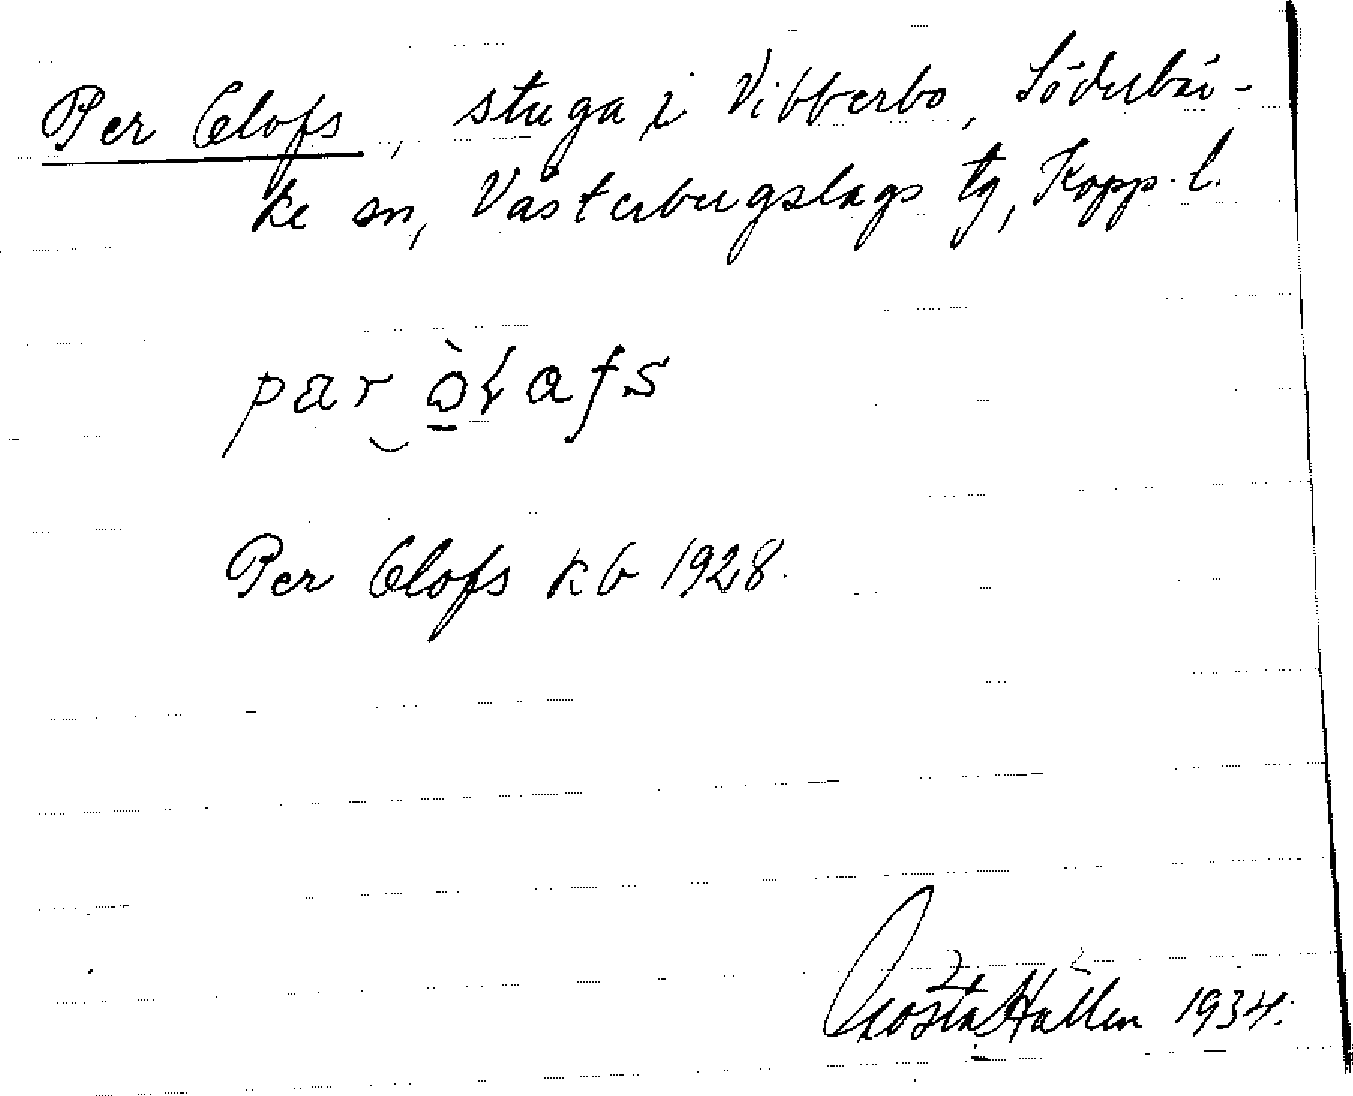 Per Olofs, stuga i Vibberbo, Söderbär-
ke sn, Västerbergslags tg, Kopp. l.
pær‿ò̱ɽafs
Per Olofs kb 1928.
Gösta Hallén 1934.